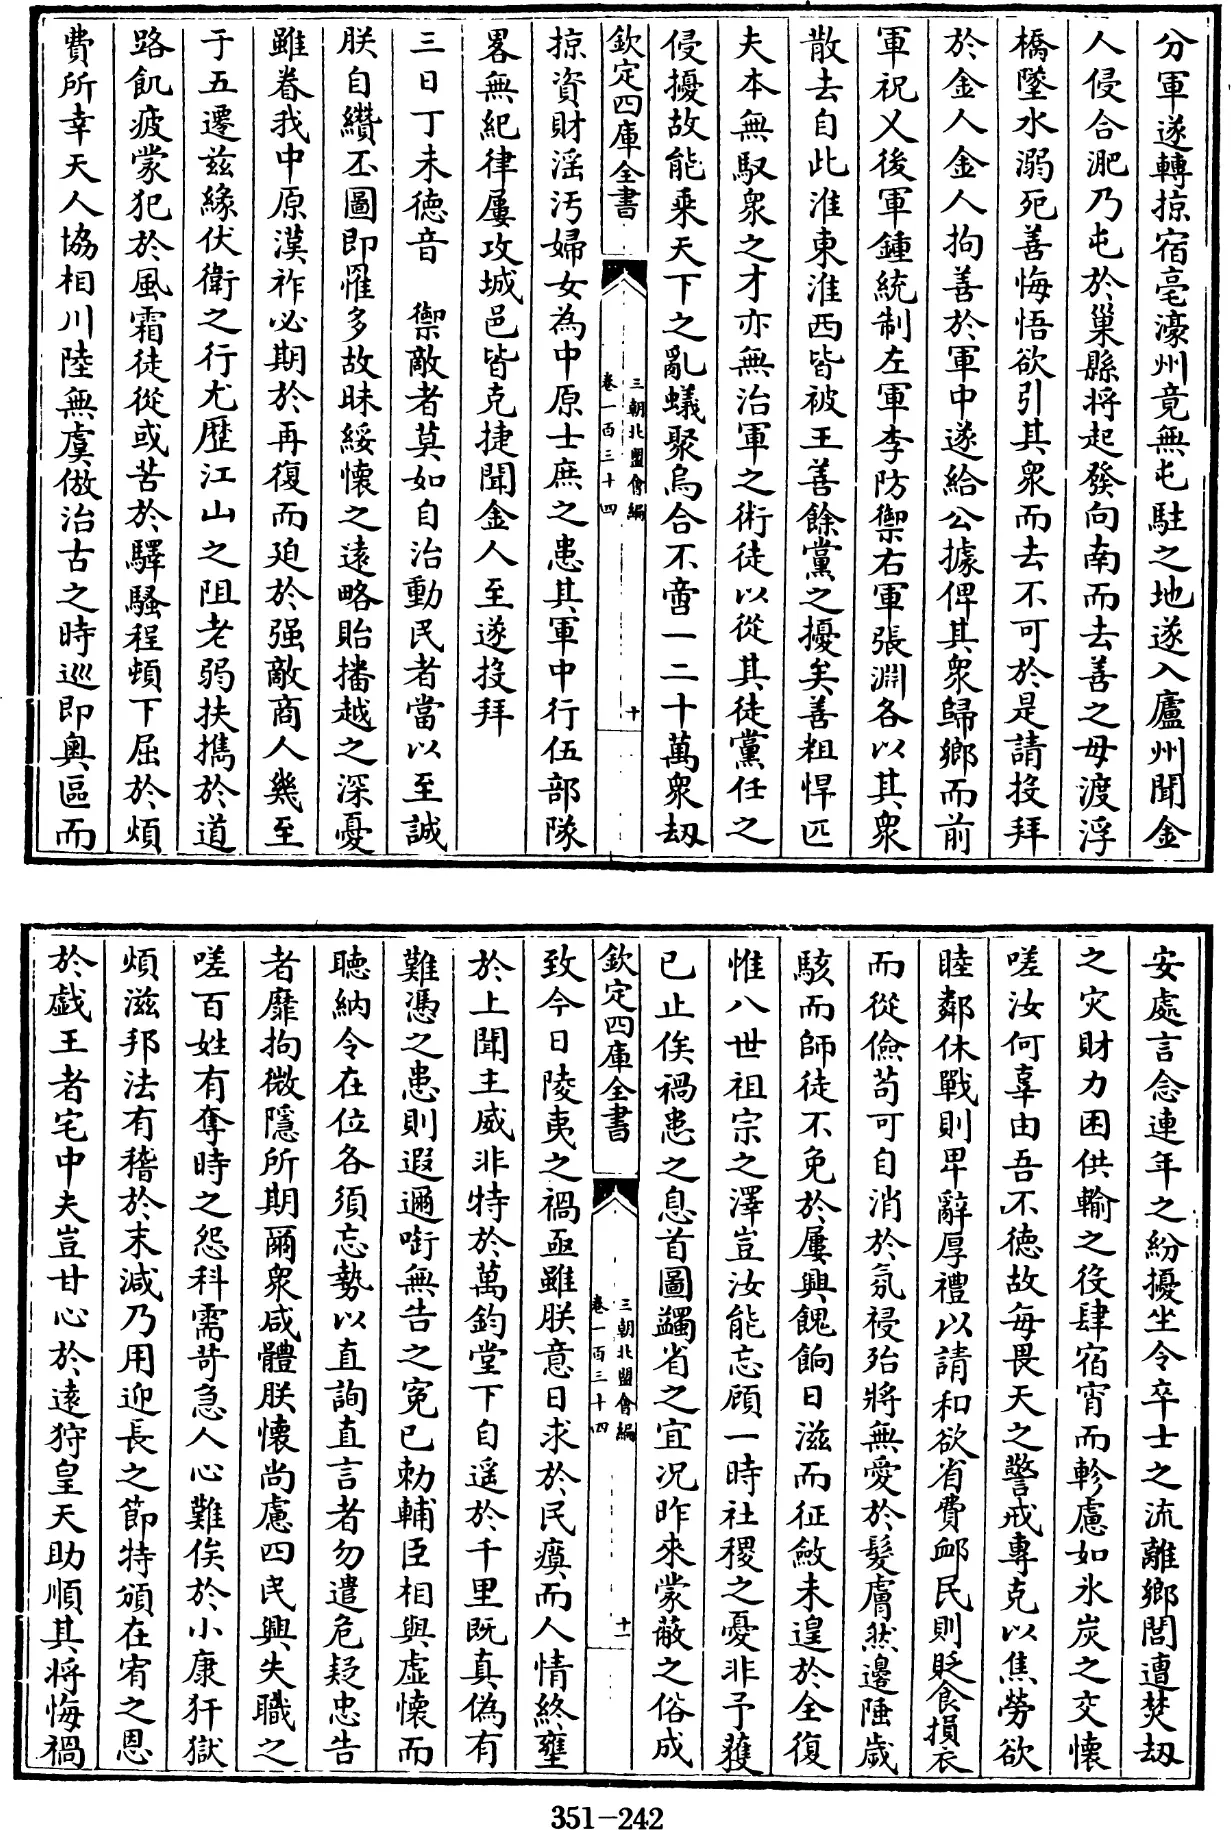 分軍遂轉掠宿亳濠州竟無屯駐之地遂入廬州聞金
人侵合淝乃屯於巢縣將起發向南而去善之母渡浮
橋墜水溺死善悔悟欲引其衆而去不可於是請投拜
於金人金人拘善於軍中遂給公據俾其衆歸鄉而前
軍祝乂後軍鍾統制左軍李防禦右軍張淵各以其衆
散去自此淮東淮西皆被王善餘黨之擾矣善粗悍匹
夫本無馭衆之才亦無治軍之術徒以從其徒黨任之
侵擾故能乗天下之亂蟻聚烏合不啻一二十萬衆刼
欽定四庫全書
三朝北盟會編
卷一百三十四
十
掠資財淫汚婦女為中原士庶之患其軍中行伍部隊
畧無紀律屢攻城邑皆克捷聞金人至遂投拜
三日丁未德音 禦敵者莫如自治動民者當以至誠
朕自纘丕圖即罹多故昧綏懐之逺略貽播越之深憂
雖眷我中原漢祚必期於再復而廹於强敵商人幾至
于五遷兹緣伏衛之行尤歴江山之阻老弱扶攜於道
路飢疲蒙犯於風霜徒從或苦於驛騷程頓下屈於煩
費所幸天人協相川陸無虞倣治古之時巡即奥區而
安處言念連年之紛擾坐令卒士之流離鄉閭遭焚刼
之灾財力困供輸之役肆宿宵而軫慮如氷炭之交懐
嗟汝何辜由吾不德故每畏天之警戒專克以焦勞欲
睦鄰休戰則卑辭厚禮以請和欲省費䘏民則貶食損衣
而從儉苟可自消於氛祲殆將無愛於髮膚然邊陲歲
駭而師徒不免於屢興餽餉日滋而征斂未遑於全復
惟八世祖宗之澤豈汝能忘顧一時社稷之憂非予獲
已止俟禍患之息首圖蠲省之宜况昨來蒙蔽之俗成
欽定四庫全書
三朝北盟會編
卷一百三十四
十一
致今日陵夷之禍亟雖朕意日求於民瘼而人情終壅
於上聞主威非特於萬鈞堂下自遥於千里既真偽有
難憑之患則遐邇啣無告之寃已勅輔臣相與虚懐而
聽納令在位各須忘勢以直詢直言者勿遣危疑忠告
者靡拘微隱所期爾衆咸體朕懐尚慮四民興失職之
嗟百姓有奪時之怨科需苛急人心難俟於小康犴獄
煩滋邦法有稽於末減乃用迎長之節特頒在宥之恩
於戯王者宅中夫豈甘心於逺狩皇天助順其將悔禍
351-242